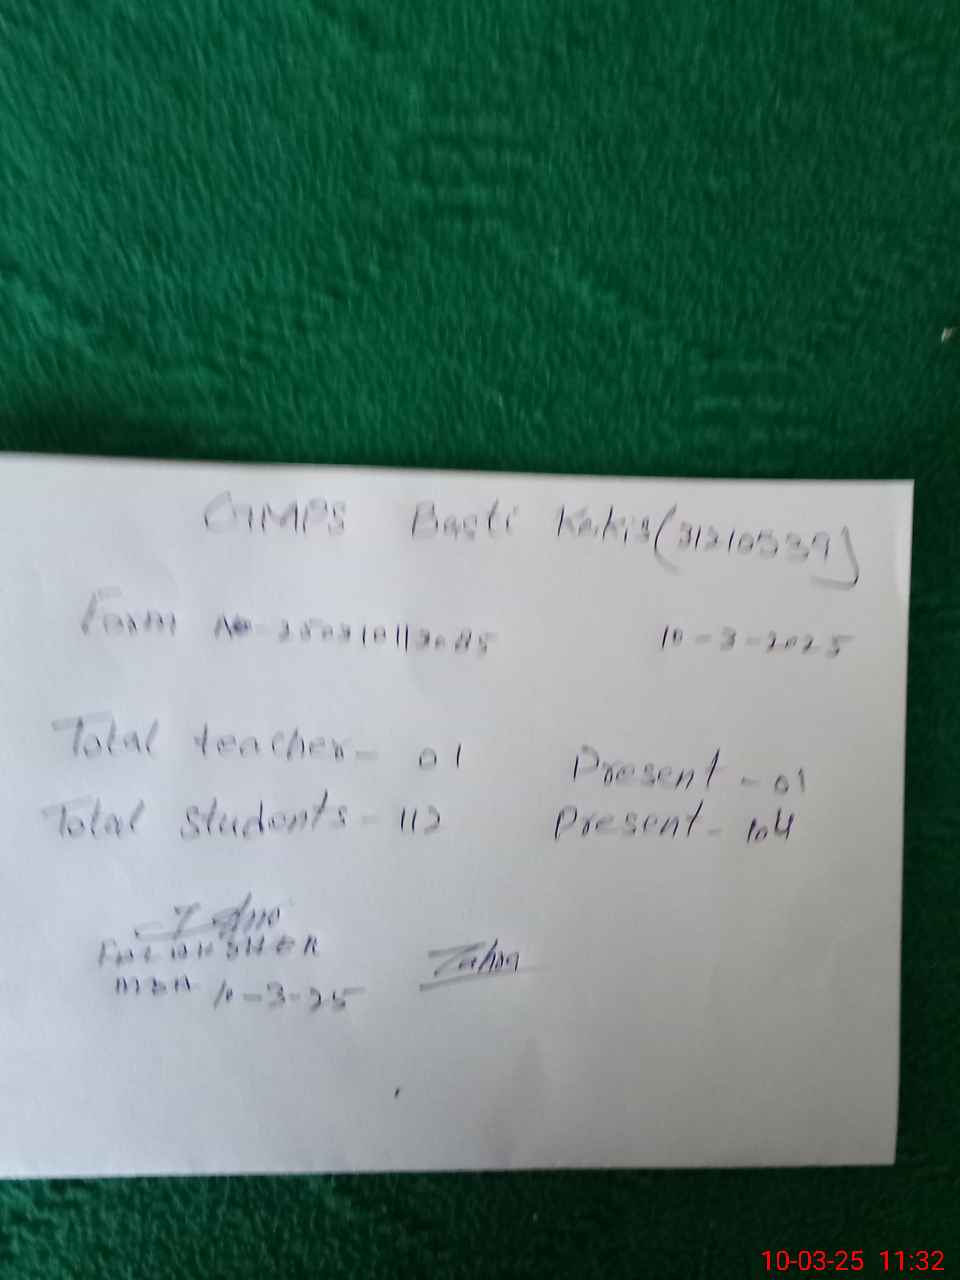 GMPS Basti Kakis (31210539)
Form No - 250310113085 10-3-2025
Total teacher - 01 Present - 01
Total students - 112 Present - 104
Zahra
10-3-25
10-03-25 11:32